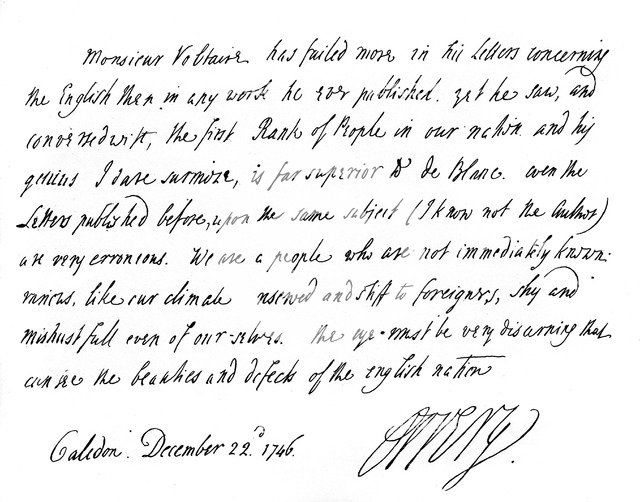 Monsieur Voltaire has failed more in his Letters concerning
the English than in any work he ever published. yet he saw, and
conversed with, the first Rank of People in our nation. and his
genius I dare surmize, is far superior to de Blanc. even the
Letters published before, upon the same subject (I know not the Author)
are very erronious. We are a people who are not immediately known.
various, like our climate reserved and stiff to foreigners, shy and
mistrustfull even of our selves. the eye must be very discerning that
can see the beauties and defects of the english nation
Caledon. December 22.d 1746.
Orrery.